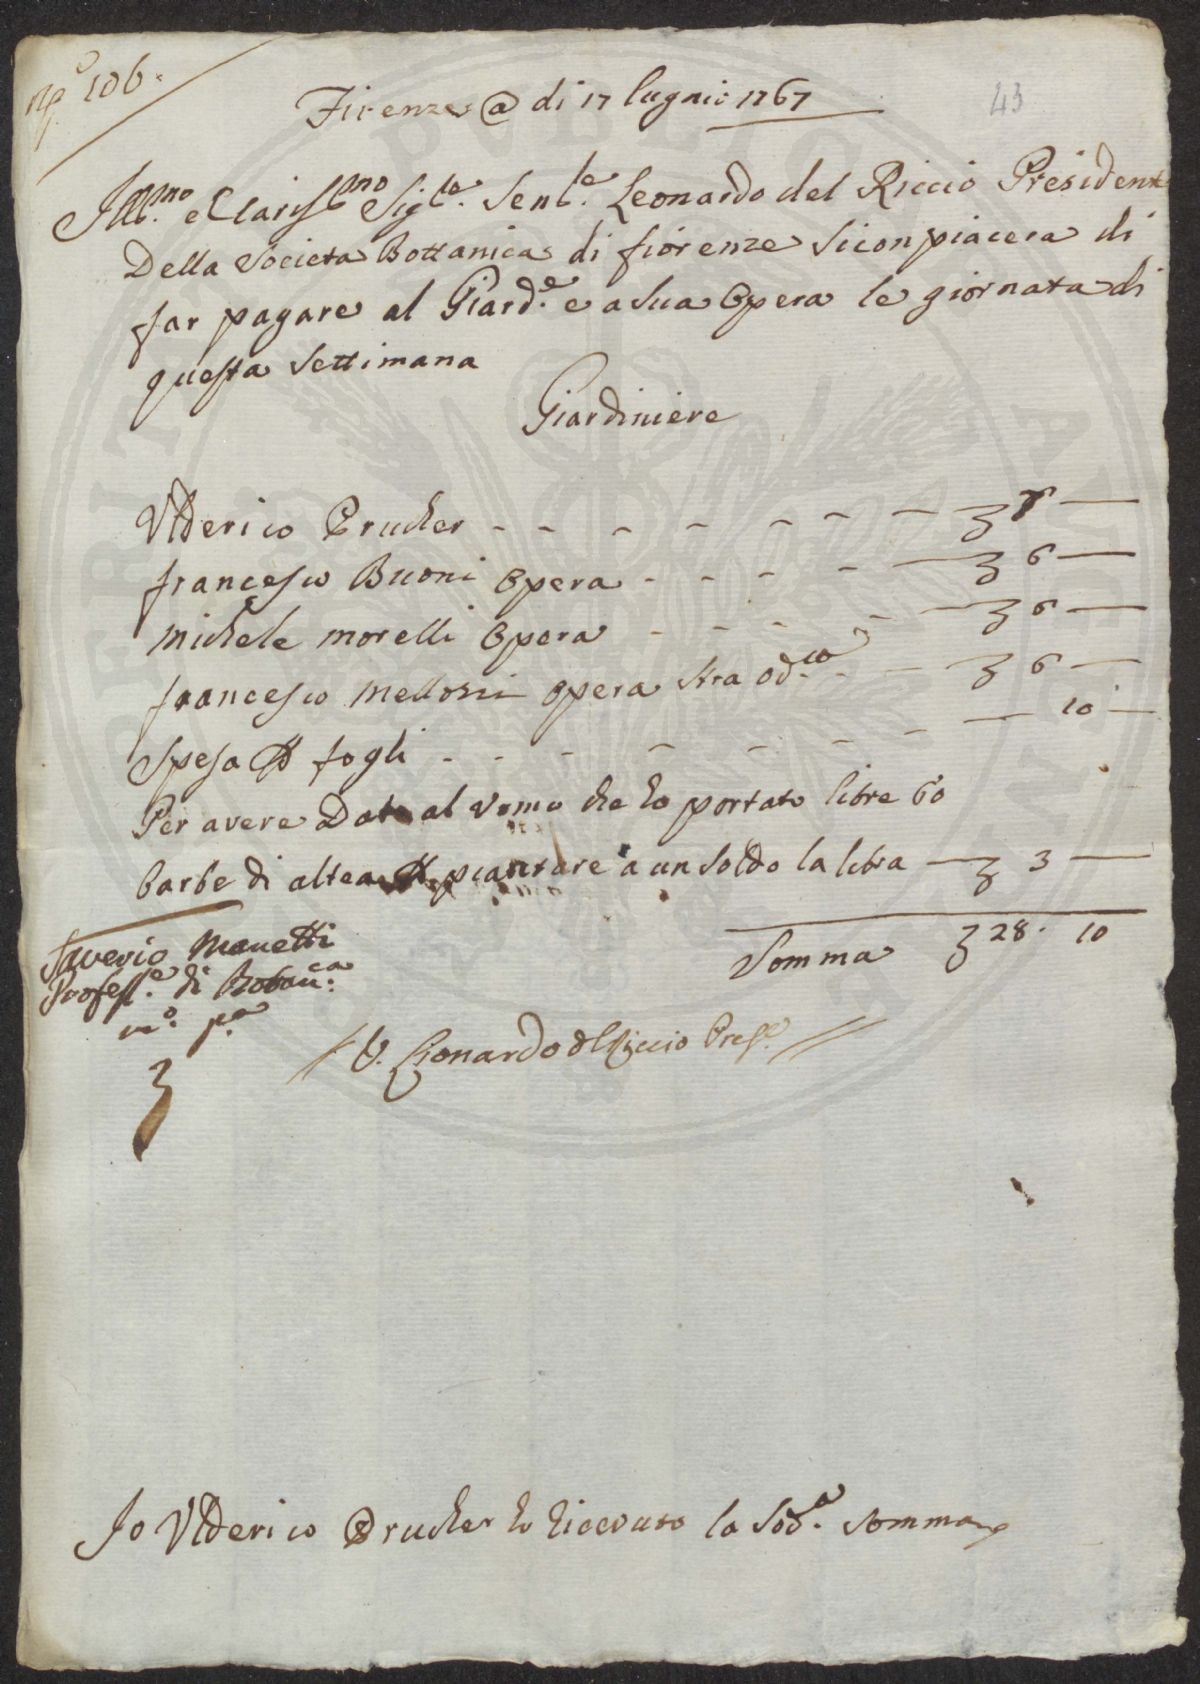 N.º 106.
43
Firenze @ di 17 lugnio 1767
Ill.mo e Clariss.mo Sig.re Sen.re Leonardo del Riccio President
Della Societa Bottanica di fiorenze Si conpiacera di
far pagare al Giard.e e a sua Opera le giornata di
questa Settimana
Giardiniere
Ulderico Prucher - - - - - - - 7 —
francesco Buoni Opera - - - - 6 —
Michele morelli Opera - - - - 6 —
francesco Mellosii opera stra od.io - - 6 —
Spesa P fogli - - - - - - - — 10 —
Per avere Dato al Vomo che ha portato libre 60
barbe di altea P piantare a un soldo la libra — 3 —
Somma 28. 10
Saverio Manetti
Profess.e di Botan.ca
m.o p.a
V. Leonardo del Riccio Pres.e
Io Ulderico Prucher ho riceuto la Sod.a Somma